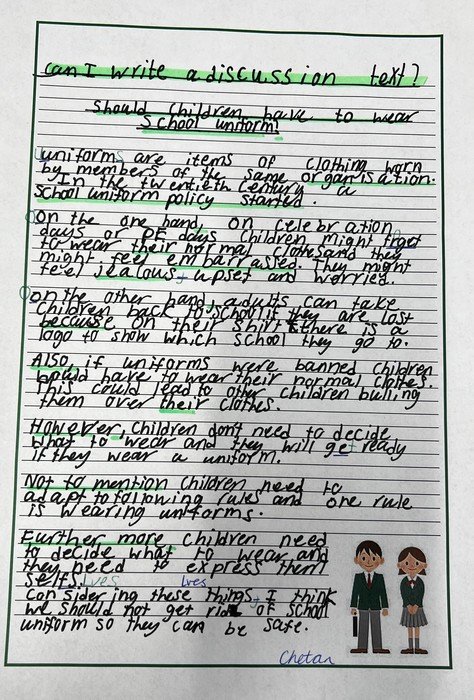 can I write a discussion text?
Should children have to wear
School uniform?
uniforms are items of clothing worn
by members of the same organisation.
In the twentieth century a
School uniform policy started.
On the one hand, on celebration
days or PE days children might forget
to wear their normal clothes and they
might feel embarrassed. They might
feel jealous, upset and worried.
on the other hand, adults can take
Children back to school if they are lost
because on their shirt there is a
logo to show which School they go to.
Also, if uniforms were banned children
would have to wear their normal clothes.
This could lead to other children bulling
them over their clothes.
However, Children don't need to decide
what to wear and they will get ready
if they wear a uniform.
Not to mention Children need to
adapt to following rules and one rule
is wearing uniforms.
Further more children need
to decide what to wear and
they need to express them
selfs. lves lves
Considering these things, I think
we should not get rid of School
uniform so they can be safe.
Chetan